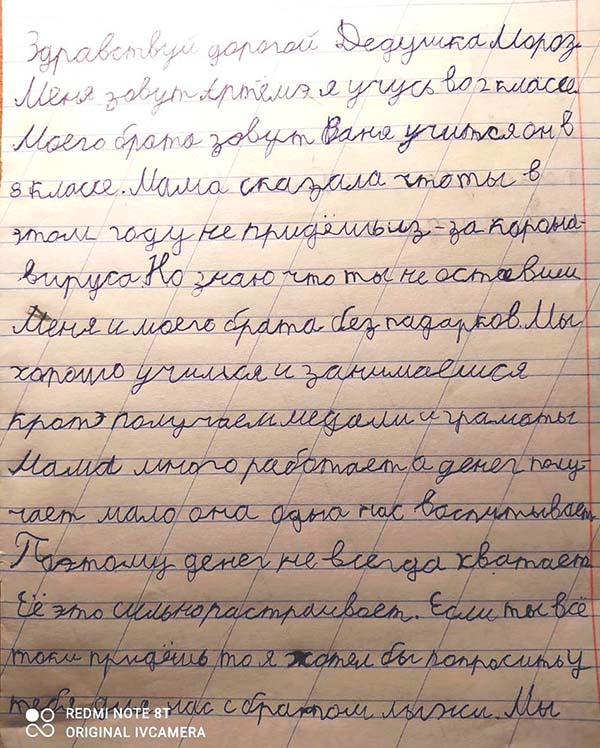 Здравствуй дорогой Дедушка Мороз.
Меня зовут Артёмэ я учусь во 2 классе.
Моего брата зовут Ваня учится он в
8 классе. Мама сказала что ты в
этом году не придёшь из-за корона-
вируса. Но знаю что ты не оставиш
Меня и моего брата без падарков. Мы
хорошо учимся и занимаемся
кратэ получаем медали и грамоты
Мама много работает а денег полу-
чает мало она одна нас воспитывает
Поэтому денег не всегда хватает.
Её это сильно растраивает. Если ты всё
токи придёшь то я хотел бы попросить у
тебя для нас с братом лыжи. Мы
REDMI NOTE 8T
ORIGINAL IVCAMERA